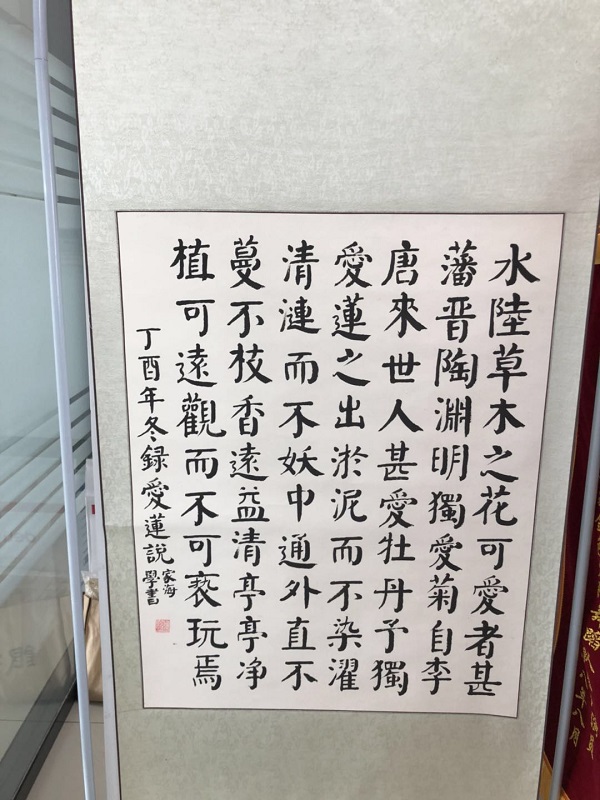 水陸草木之花可愛者甚
藩晋陶淵明獨愛菊自李
唐來世人甚愛牡丹予獨
愛蓮之出淤泥而不染濯
清漣而不妖中通外直不
蔓不枝香遠益清亭亭净
植可遠觀而不可亵玩焉
丁酉年冬録愛蓮說
家海
學書